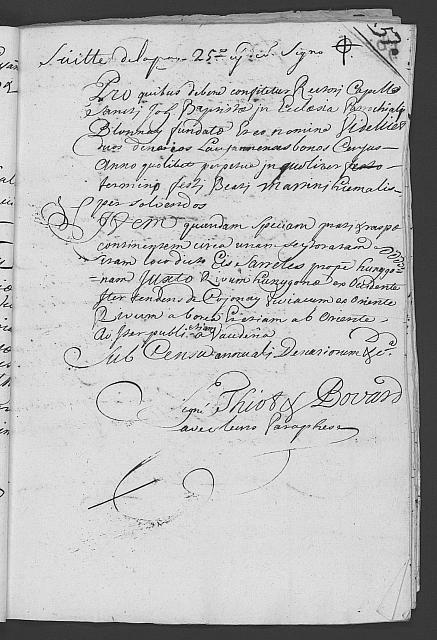 57
Suitte de la page 25e cy sous Signo
Pro quibus debere confitetur Rectori Capellæ
Sancti Joh Baptistæ in Ecclesia Parrochiali
Blonnay fundatæ Et eo nomine Videlicet
duos denarios Lausannenses bonos Cursus
Anno quolibet perpetue in quolibet festo
termino festi Beati Martini hiemalis
per solvendos
ITEM quandam Speciam prati & raspe
continentem circa unam seytoratam
sitam loco dicto Es prope
Juxta Rivum ex Occidente
Iter tendens de Viviacum ex Oriente
Rivum a borea ab Oriente
Ac Iter publicum
Sub Censu annuali Denariorum &c
Signé Thiot & Bovard
avec leurs Paraphes